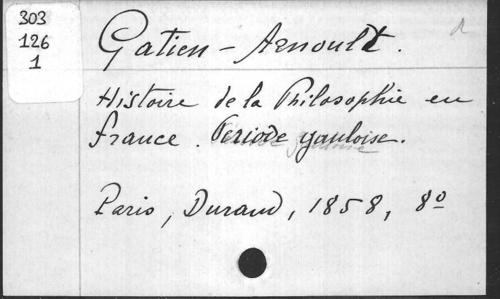 303
126
1
Gatien - Arnoult.
Histoire de la Philosophie en
france. Période gauloise.
Paris, Durand, 1858, 8º